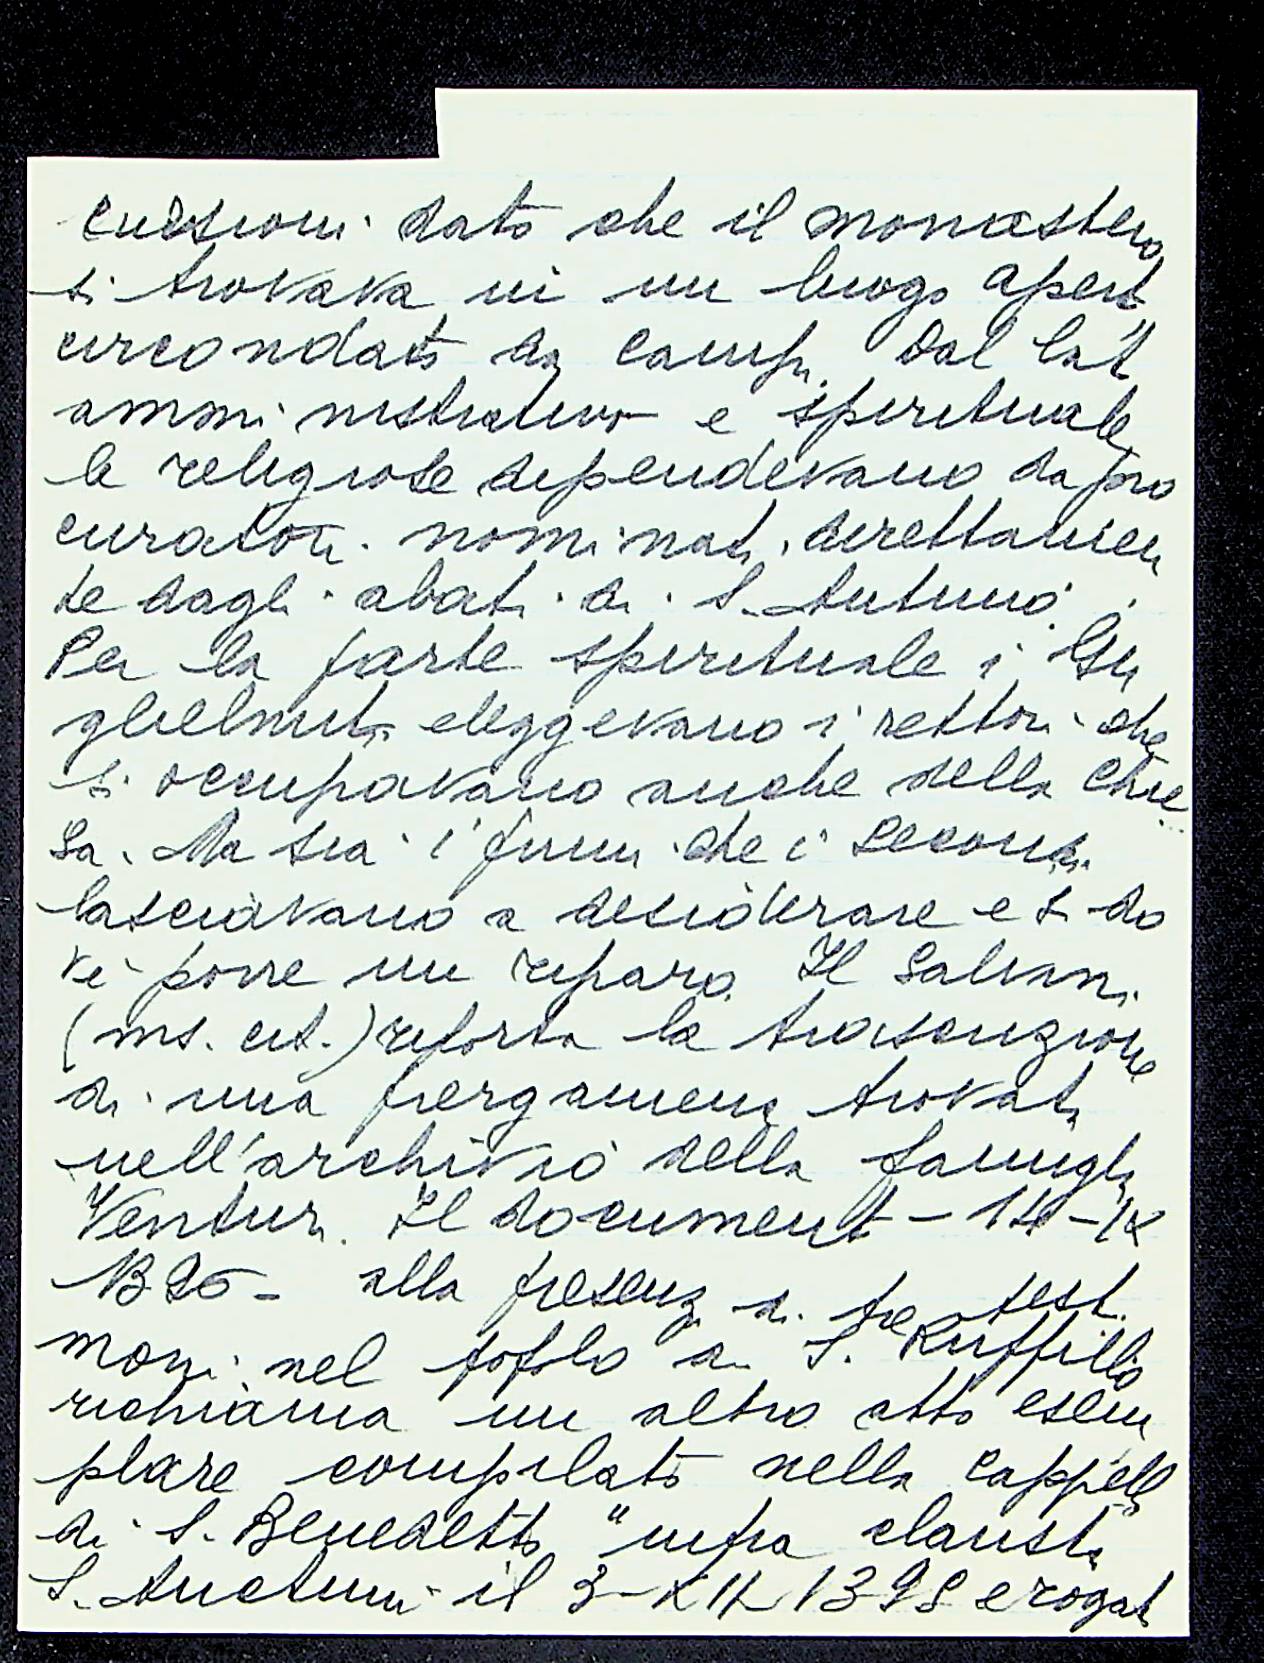 cursioni dato che il monastero
si trovava in un luogo aperto
circondato da campi. Dal lato
amministrativo e spirituale
le religiose dipendevano da pro
curatori nominati direttamen
te dagli abati di S. Antimo.
Per la parte spirituale i Gu
glielmiti eleggevano i rettori che
si occupavano anche della Chie
sa. Ma sia i primi che i secondi
lasciavano a desiderare e si do
vè porre un riparo. Il Salvini
(ms. cit.) riporta la trascrizione
di una pergamena trovata
nell'archivio della famiglia
Venturi. Il documento - 14 - IX
alla presenza di tre testi
moni nel popolo di S. Ruffillo
richiama un altro atto esem
plare compilato nella cappella
di S. Benedetto "infra claustra
S. Anctimi il 3-XII 1398 e rogato